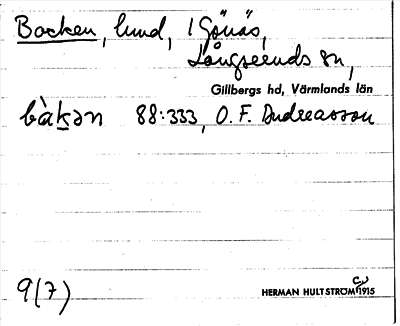 Backen, lund, 1 Gönäs,
Långseruds sn,
Gillbergs hd, Värmlands län
bàkən 88:333, O. F. Andreasson
9(7)
HERMAN HULTSTRÖM 1915